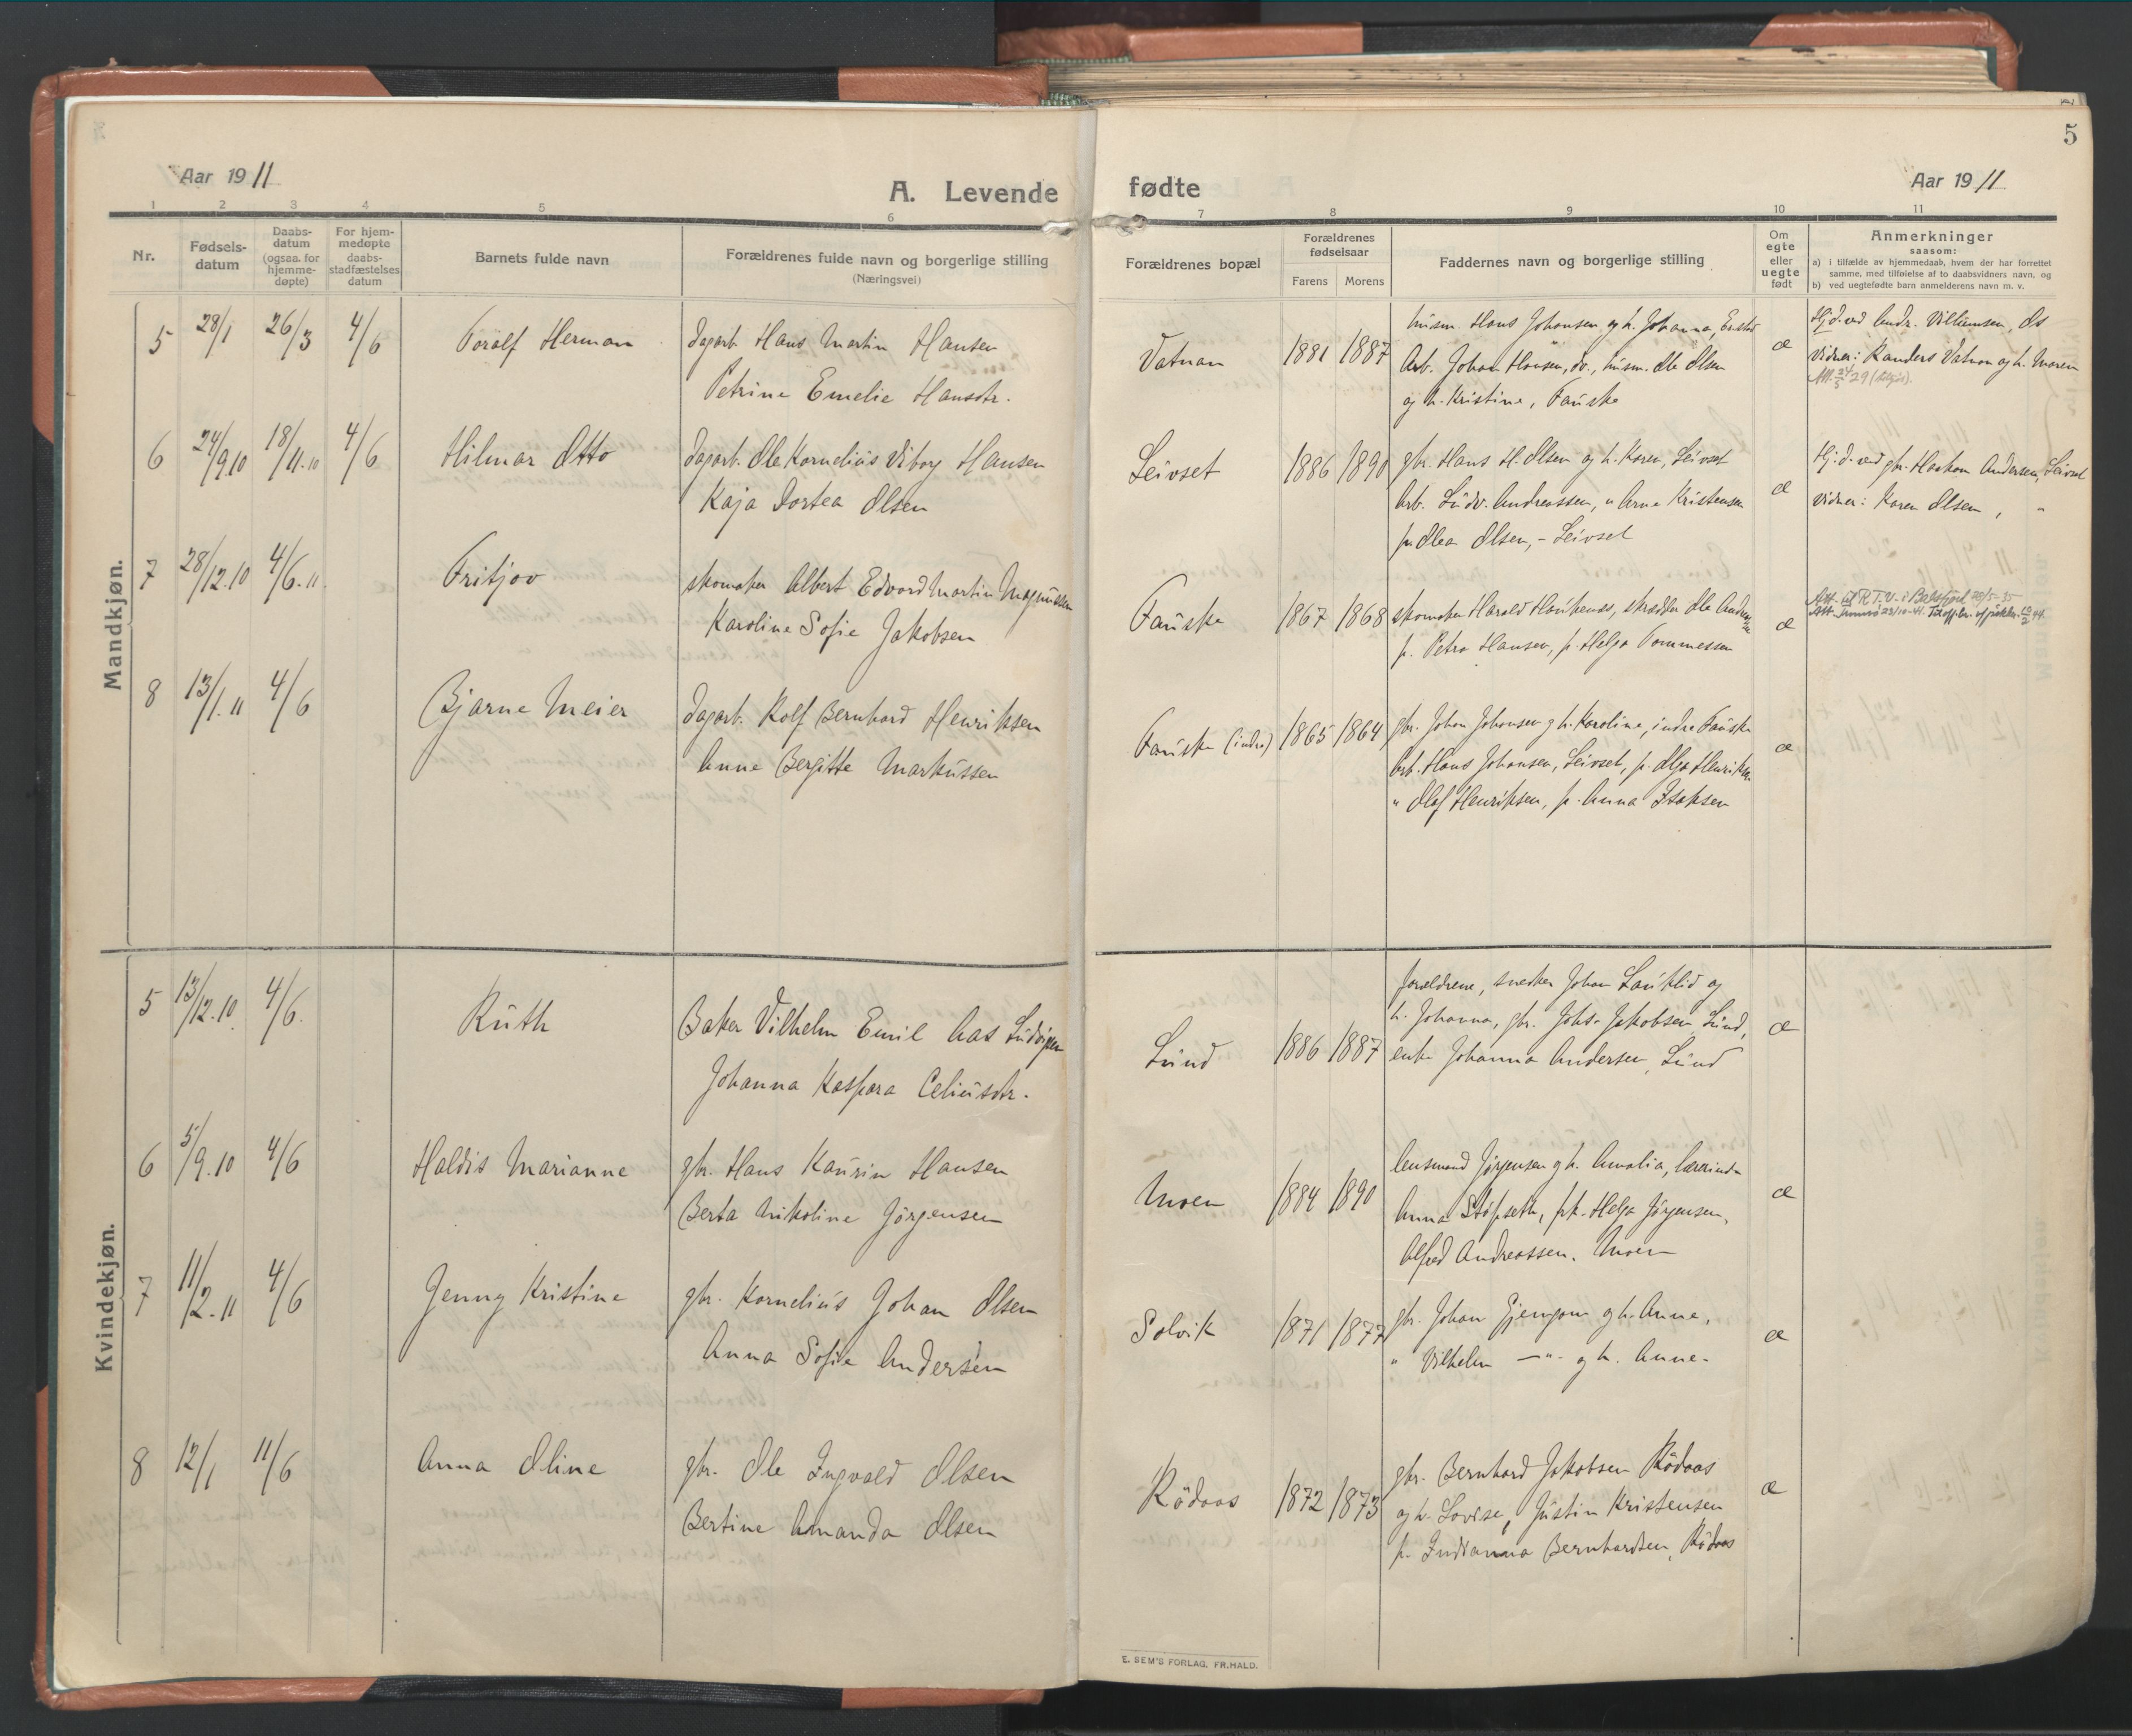 5
Aar 1911
A. Levende
fødte
Aar 1911
1 2 3 4 5 6 7 8 9 10 11
Nr.
Fødsels-
datum
Daabs-
datum
(ogsaa. for
hjemme-
døpte)
For hjem-
medøpte
daabs-
stadfæstelses
datum
Barnets fulde navn
Forældrenes fulde navn og borgerlige stilling
(Næringsvei)
Forældrenes bopæl
Forældrenes
fødselsaar
Farens Morens
Faddernes navn og borgerlige stilling
Om
egte
eller
uegte
født
Anmerkninger
saasom:
a) i tilfælde av hjemmedaab, hvem der har forrettet
samme, med tilføielse af to daabsvidners navn, og
b) ved uegtefødte barn anmelderens navn m. v.
Mandkjøn.
5 28/1 26/3 4/6 Toralf Herman
Dagarb. Hans Martin Hansen
Petrine Emelie Hansdtr.
Vatnan 1881 1887
husm. Hans Johansen og h. Johanna,
Arb. Johan Hansen, do., husm. Ole Olsen
og h. Kristine, Fauske
æ
Hj.d. ved Andr. Villumsen, ds
vidner: Randers Vatnan og h. Maren
6 24/9.10 18/11.10 4/6 Hilmar Otto
Dagarb. Ole Kornelius Viborg Hansen
Kaja Dortea Olsen
Leivset 1886 1890
gbr. Hans H. Olsen og h. Karen, Leivset
Arb. Ludv. Andreassen, " Arne Kristensen
p. Olea Olsen, - Leivset
æ
Hj.d. ved gbr. Haakon Andersen, Leivset
vidner: Karen Olsen, "
7 28/12.10 4/6.11. Fritjov
skomaker Albert Edvard Martin Magnussen
Karoline Sofie Jakobsen
Fauske 1867 1868
skomaker Harald Haukenæs, skrædder Ole Andersen
p. Petra Hansen, p. Helga Tommessen
æ
8 13/1.11 4/6 Bjarne Meier
Dagarb. Rolf Bernhard Henriksen
Anne Bergitte Markussen
Fauske (indre) 1865 1864
gbr. Johan Johansen og h. Karoline, indre Fauske
Arb. Hans Johansen, Leivset, p. Olga Henriksen
" Olaf Henriksen, p. Anna Isaksen
æ
Kvindekjøn.
5 13/12.10 4/6. Ruth
Baker Vilhelm Emil Aas Ludvigsen
Johanna Kaspara Celiusdtr.
Lund 1886 1887
forældrene, snedker Johan Lauklid og
h. Johanna, gbr. Johs. Jakobsen, Lund,
enke Johanna Andersen, Lund
æ
6 5/9.10 4/6 Haldis Marianne
gbr. Hans Kaurin Hansen
Berta Nikoline Jørgensen
Moen 1884 1890
lensmand Jørgensen og h. Amalia, lærerinde
Anna Støpseth, frk. Helga Jørgensen,
Alfred Andreassen. Moen
æ
7 11/2.11 4/6 Jenny Kristine
gbr. Kornelius Johan Olsen
Anna Sofie Andersen
Solvik 1871 1877
gbr. Johan Gjemgam og h. Anne,
" Vilhelm —"— og h. Anne.
æ
8 12/1 11/6 Anna Oline
gbr. Ole Ingvald Olsen
Bertine Amanda Olsen
Rödaas 1872 1873
gbr. Bernhard Jakobsen Rödaas
og h. Lovise, Justin Kristensen
p. Indianna Bernhardsen, Rödaas
æ
E. SEM'S FORLAG, FR.HALD.